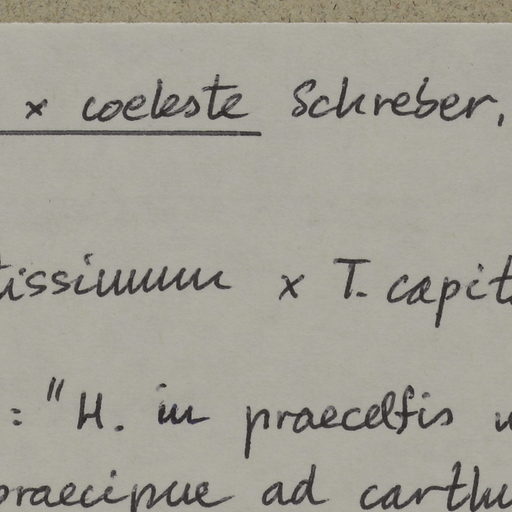 × coeleste Schreber,
tissimum × T. capit
: "H. in praecelsis
praecipue ad carthu